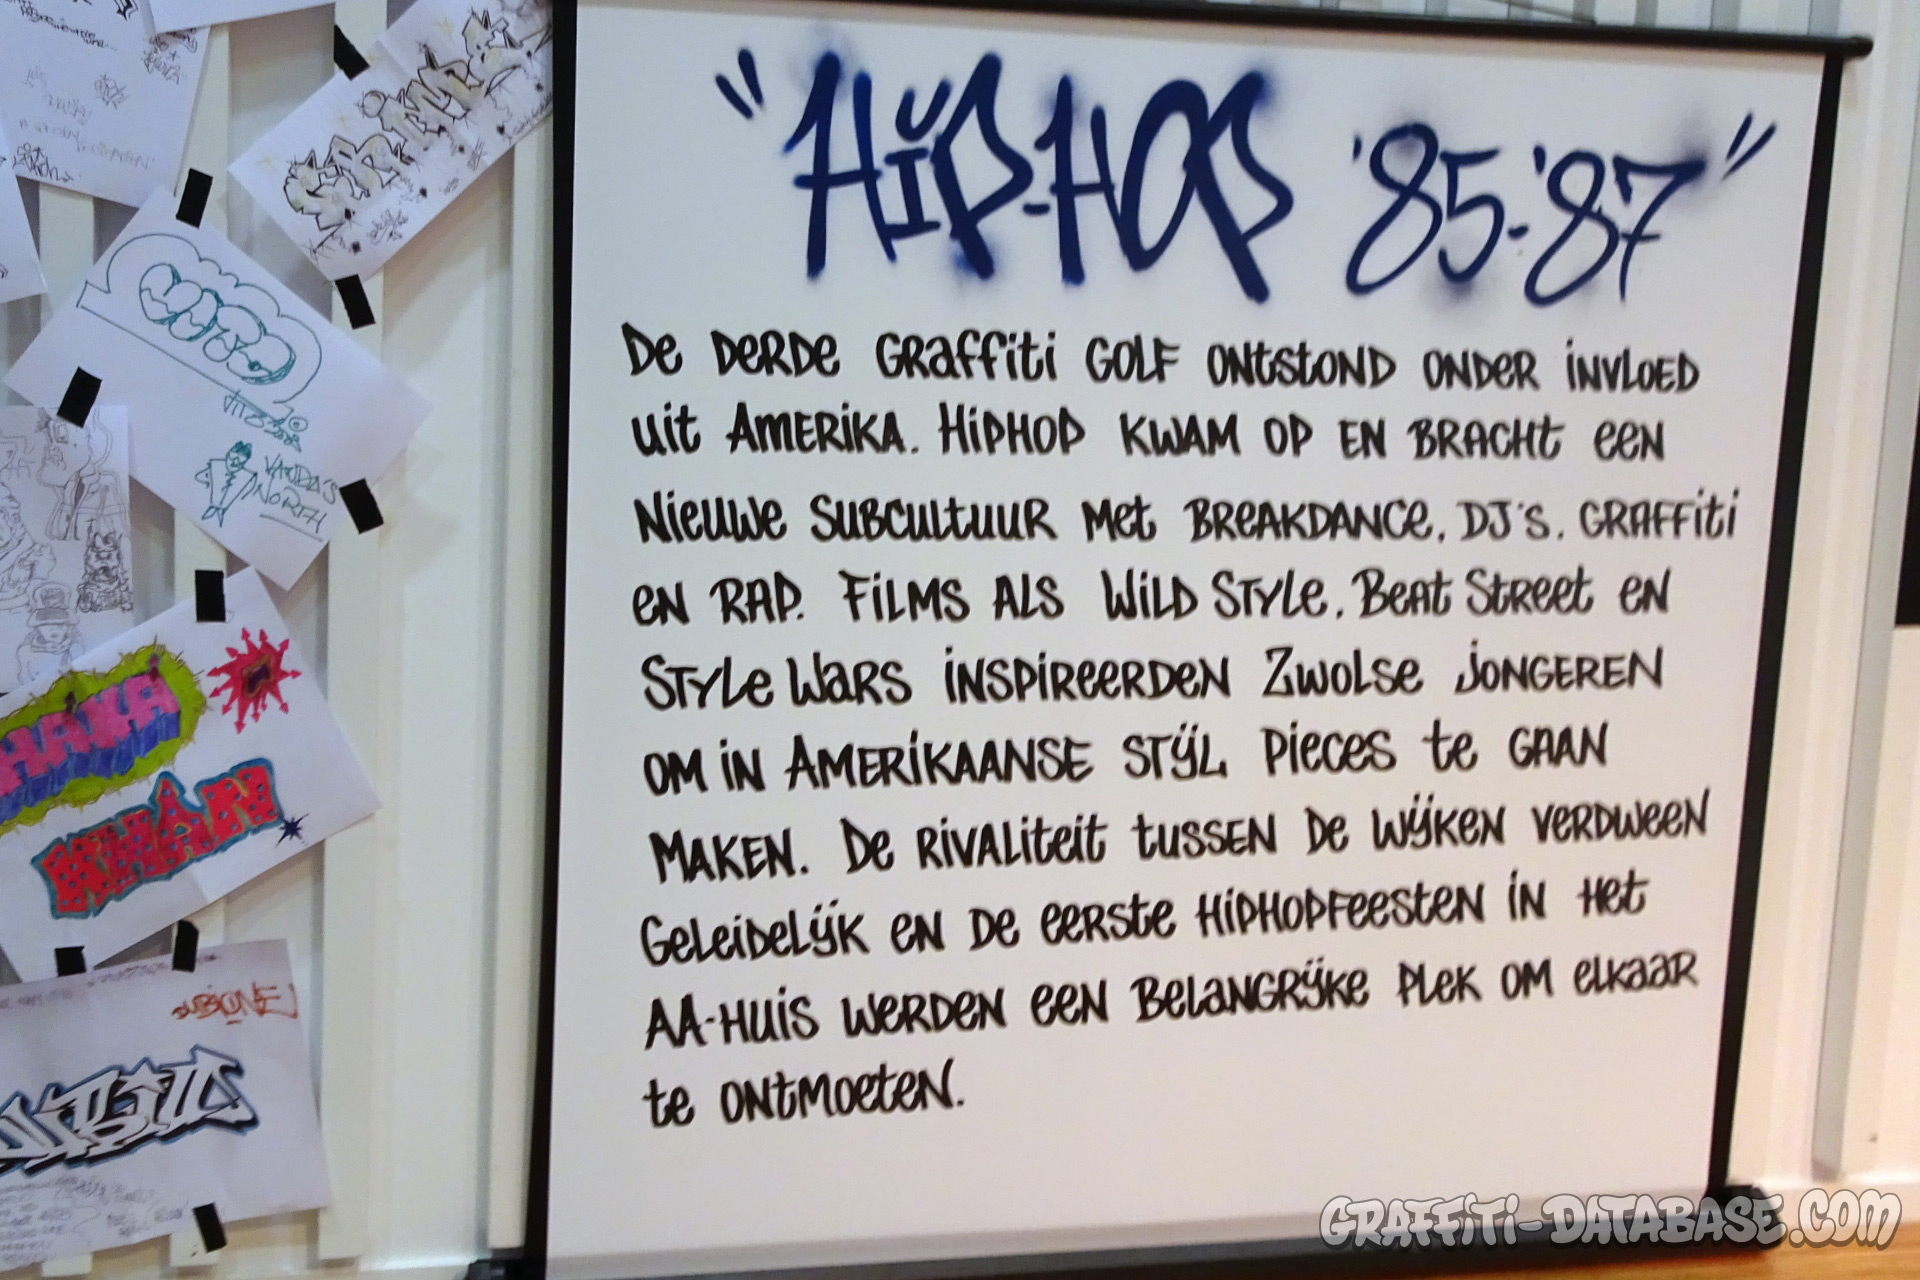 "HIP-HOP '85-'87"
De derde graffiti golf ontstond onder invloed
uit Amerika. Hiphop kwam op en bracht een
nieuwe subcultuur met breakdance, DJ's, graffiti
en rap. Films als Wild Style, Beat Street en
Style Wars inspireerden Zwolse jongeren
om in Amerikaanse stijl pieces te gaan
maken. De rivaliteit tussen de wijken verdween
geleidelijk en de eerste hiphopfeesten in het
AA-huis werden een belangrijke plek om elkaar
te ontmoeten.
KHAN
SUBIONE
GRAFFITI-DATABASE.COM